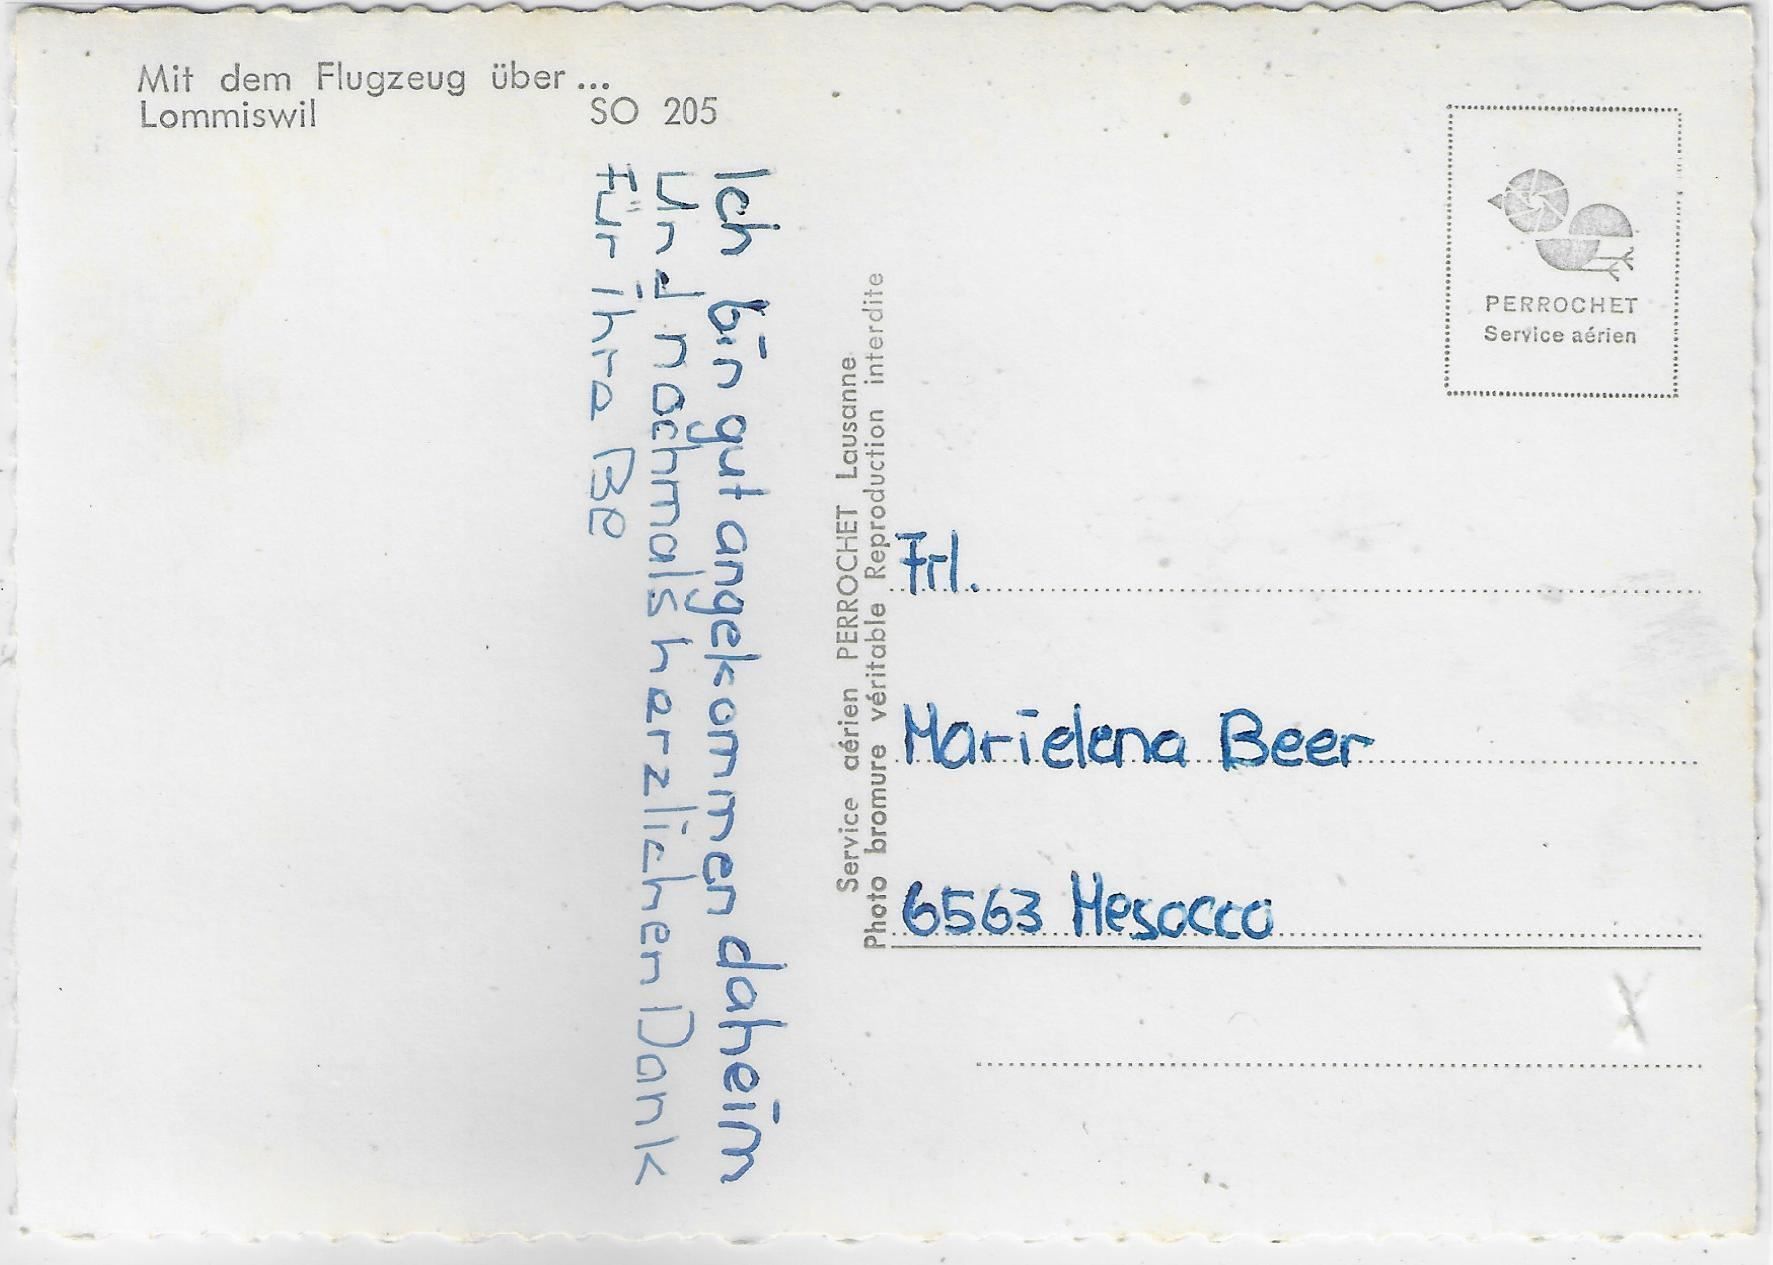 Mit dem Flugzeug über ...
Lommiswil SO 205
Ich bin gut angekommen daheim
Und nochmals herzlichen Dank
Für ihre Be
Service aérien PERROCHET Lausanne
Photo bromure véritable Reproduction interdite
PERROCHET
Service aérien
Frl.
Marielena Beer
6563 Mesocco